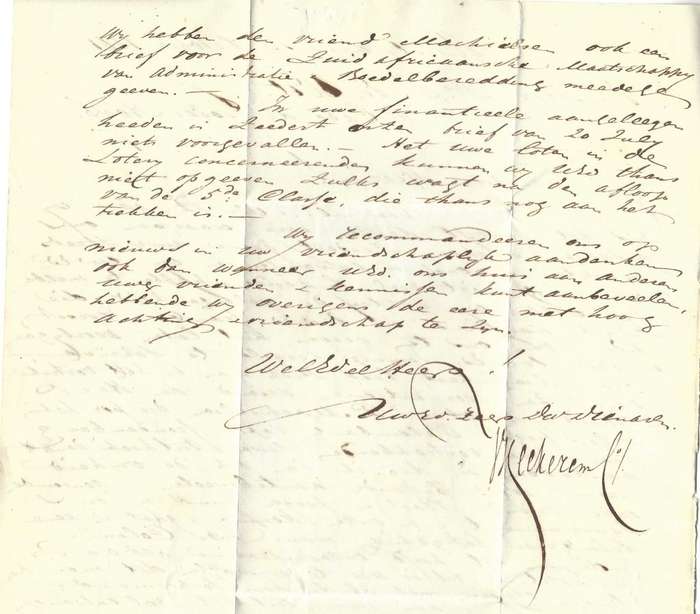 Wy hebben den vriend Machielsen ook een
brief voor de Zuid afrikaansche Maatschappy
van administratie & Boedelberedding meedege
geeven. —
In uwe financieele aangeleegen
heeden is zeedert onzen brief van 20 July
niets voorgevallen. — Het uwe loten in de
Lotery concerneerende kunnen wy UEd thans
niet opgeeven zulks wagt na den afloop
van de 5de Classe, die thans nog aan het
trekken is. —
Wy recommandeeren ons op
nieuws in uw vriendschaplyk aandenken
ook dan wanneer UEd. ons huis aan anderen
uwer vrienden & kennissen kunt aanbeveelen,
hebbende wy overigens de eere met hoog
achting & vriendschap te zyn.
WelEdel Heer !
UwEd zeer Dw Dienaren